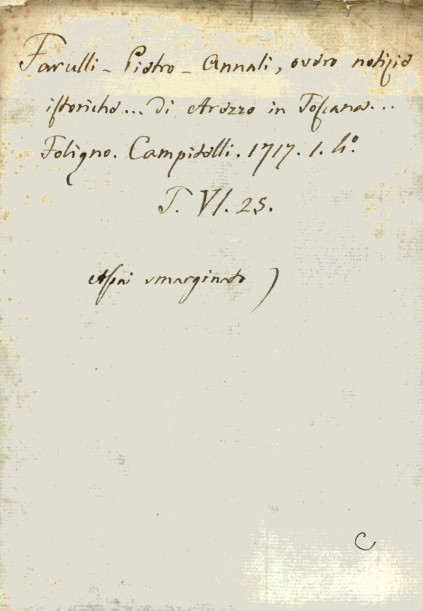 Farulli - Pietro - Annali, overo notizie
istoriche... di Arezzo in Toscana...
Foligno. Campitelli. 1717. 1. 4.º
T. VI. 25.
Assai smarginato )
C